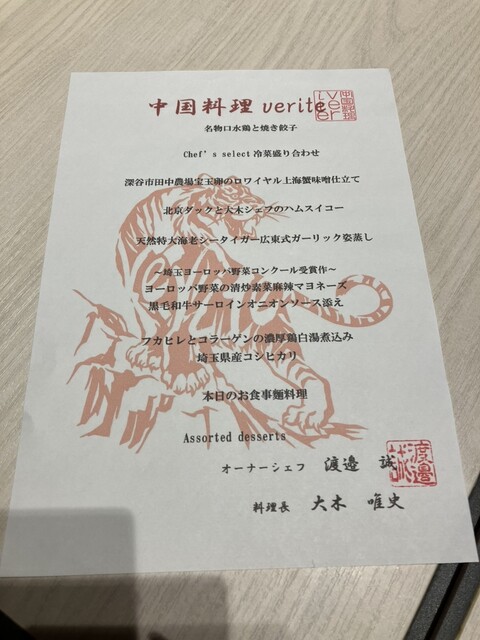 中国料理 verite
名物口水鶏と焼き餃子
Chef's select 冷菜盛り合わせ
深谷市田中農場宝玉卵のロワイヤル上海蟹味噌仕立て
北京ダックと大木シェフのハムスイコー
天然特大海老シータイガー広東式ガーリック姿蒸し
～埼玉ヨーロッパ野菜コンクール受賞作～
ヨーロッパ野菜の清炒素菜麻辣マヨネーズ
黒毛和牛サーロインオニオンソース添え
フカヒレとコラーゲンの濃厚鶏白湯煮込み
埼玉県産コシヒカリ
本日のお食事麺料理
Assorted desserts
オーナーシェフ 渡邉 誠
料理長 大木 唯史